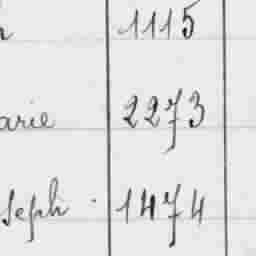 h 1115
arie 2273
seph · 1474